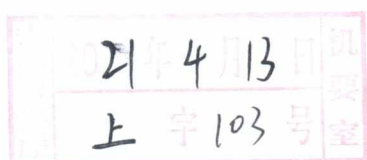 2021年4月13日
上字103号
机要室